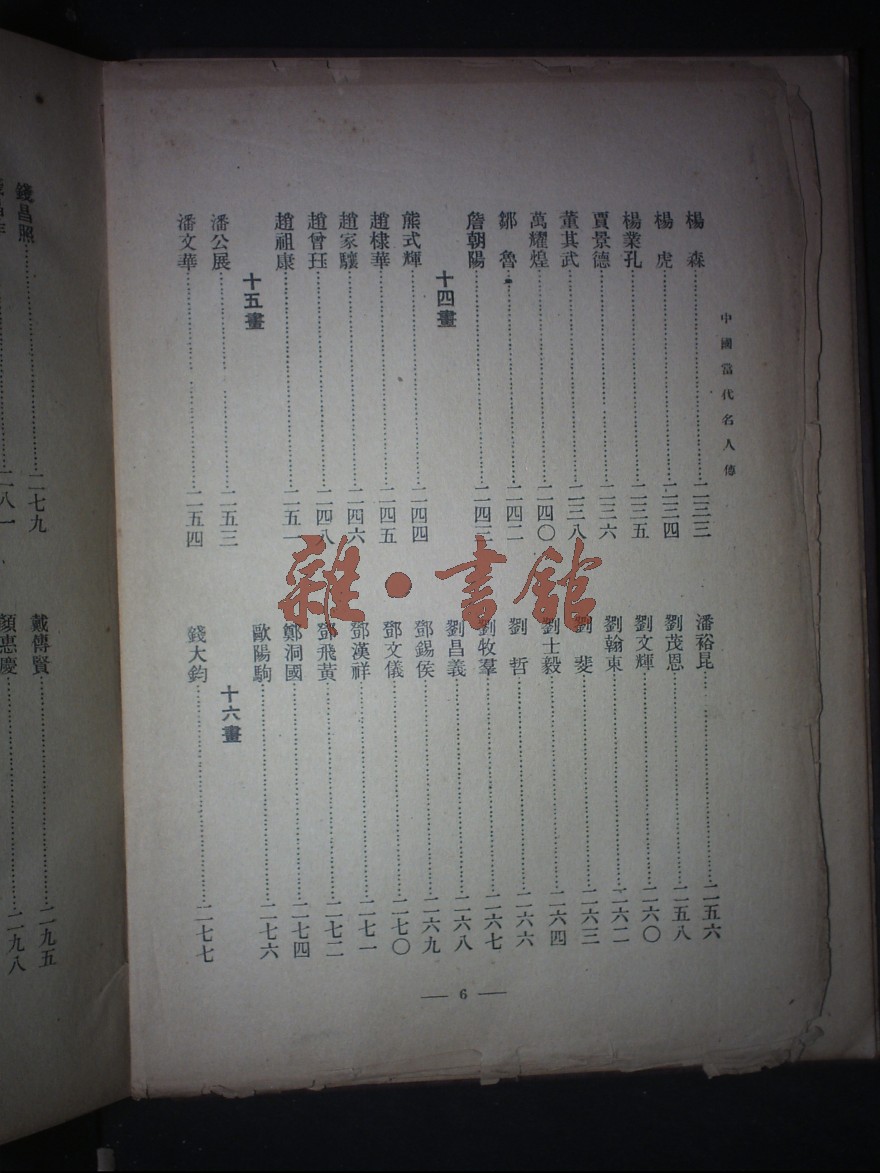 中國當代名人傳
楊　森……二三三
楊　虎……二三四
楊業孔……二三五
賈景德……二三六
董其武……二三八
萬耀煌……二四〇
鄒　魯……二四二
詹朝陽……二四三
十四畫
熊式輝……二四四
趙棣華……二四五
趙家驤……二四六
趙曾珏……二四八
趙祖康……二五一
十五畫
潘公展……二五三
潘文華……二五四
潘裕昆……二五六
劉茂恩……二五八
劉文輝……二六〇
劉翰東……二六二
劉　斐……二六三
劉士毅……二六四
劉　哲……二六六
劉牧羣……二六七
劉昌義……二六八
鄧錫侯……二六九
鄧文儀……二七〇
鄧漢祥……二七一
鄧飛黃……二七二
鄭洞國……二七四
歐陽駒……二七六
十六畫
錢大鈞……二七七
— 6 —
錢昌照……二七九
二八一
戴傳賢……二九五
顏惠慶……二九八
雜·書館